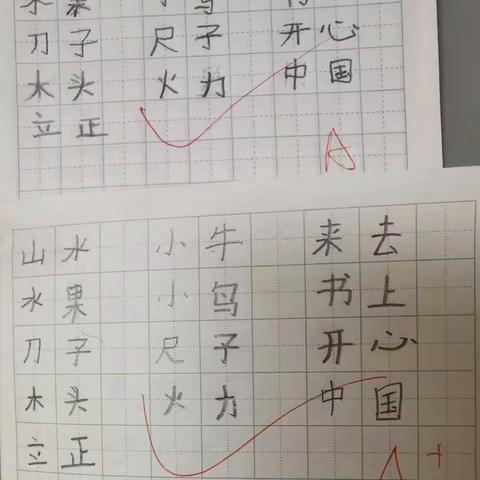 果 小 鸟
刀子 尺子 开心
木头 火力 中国
立正
A
山水 小牛 来去
水果 小鸟 书上
刀子 尺子 开心
木头 火力 中国
立正
A+